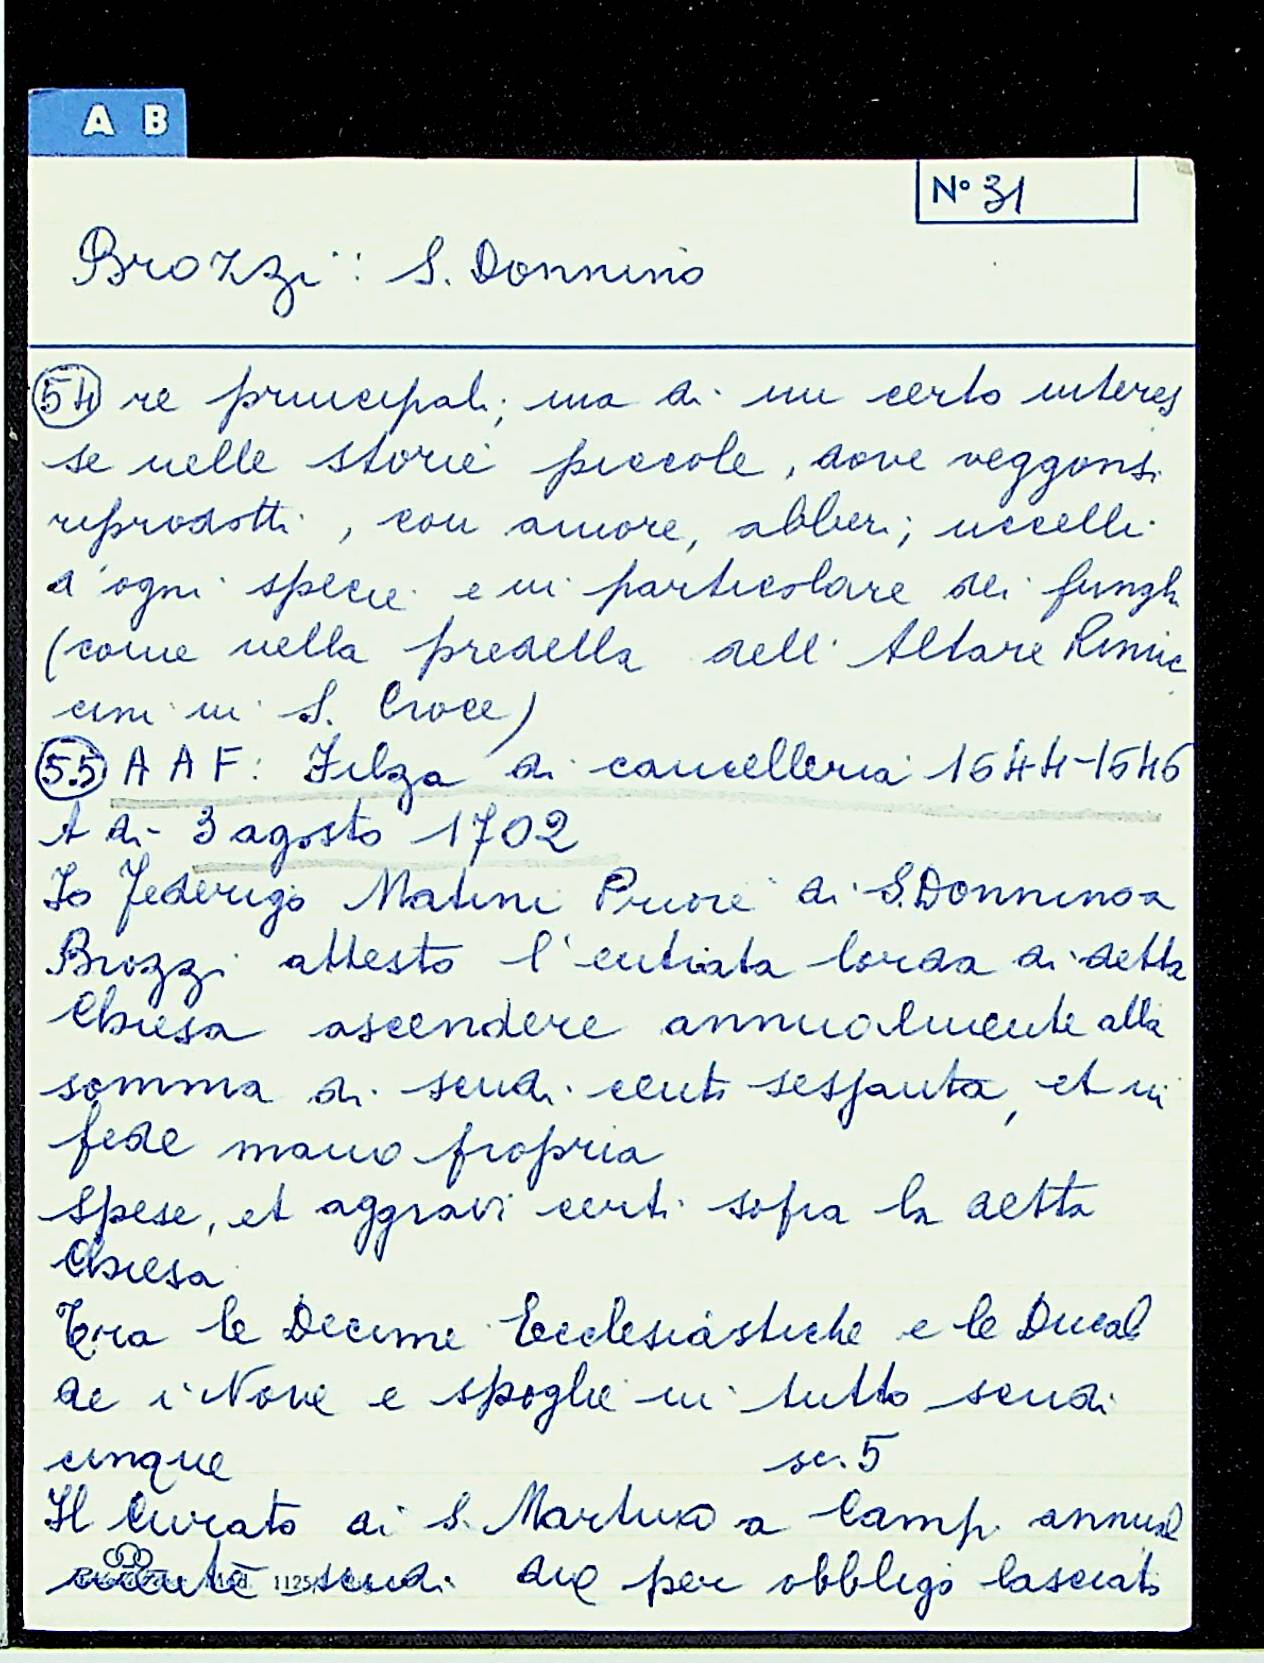 A B
N° 31
Brozzi: S. Donnino
54 re principali; ma di un certo interes
se nelle storie piccole, dove veggonsi
riprodotti, con amore, alberi; uccelli
d'ogni specie e in particolare dei funghi
(come nella predella dell'Altare Rinuc
cini in S. Croce)
55 A A F: Filza di cancelleria 1544-1546
A di 3 agosto 1702
Io Federigo Matini Priore di S. Donnino a
Brozzi attesto l'entrata lorda di detta
Chiesa ascendere annualmente alla
somma di scudi cento sessanta, et in
fede mano propria
Spese, et aggravi certi sopra la detta
Chiesa
Tra le Decime Ecclesiastiche e le Ducal
de i Nove e spoglie in tutto scudi
cinque sc. 5
Il Curato di S. Martino a Campi annual
mente scudi due per obbligo lasciato
1125